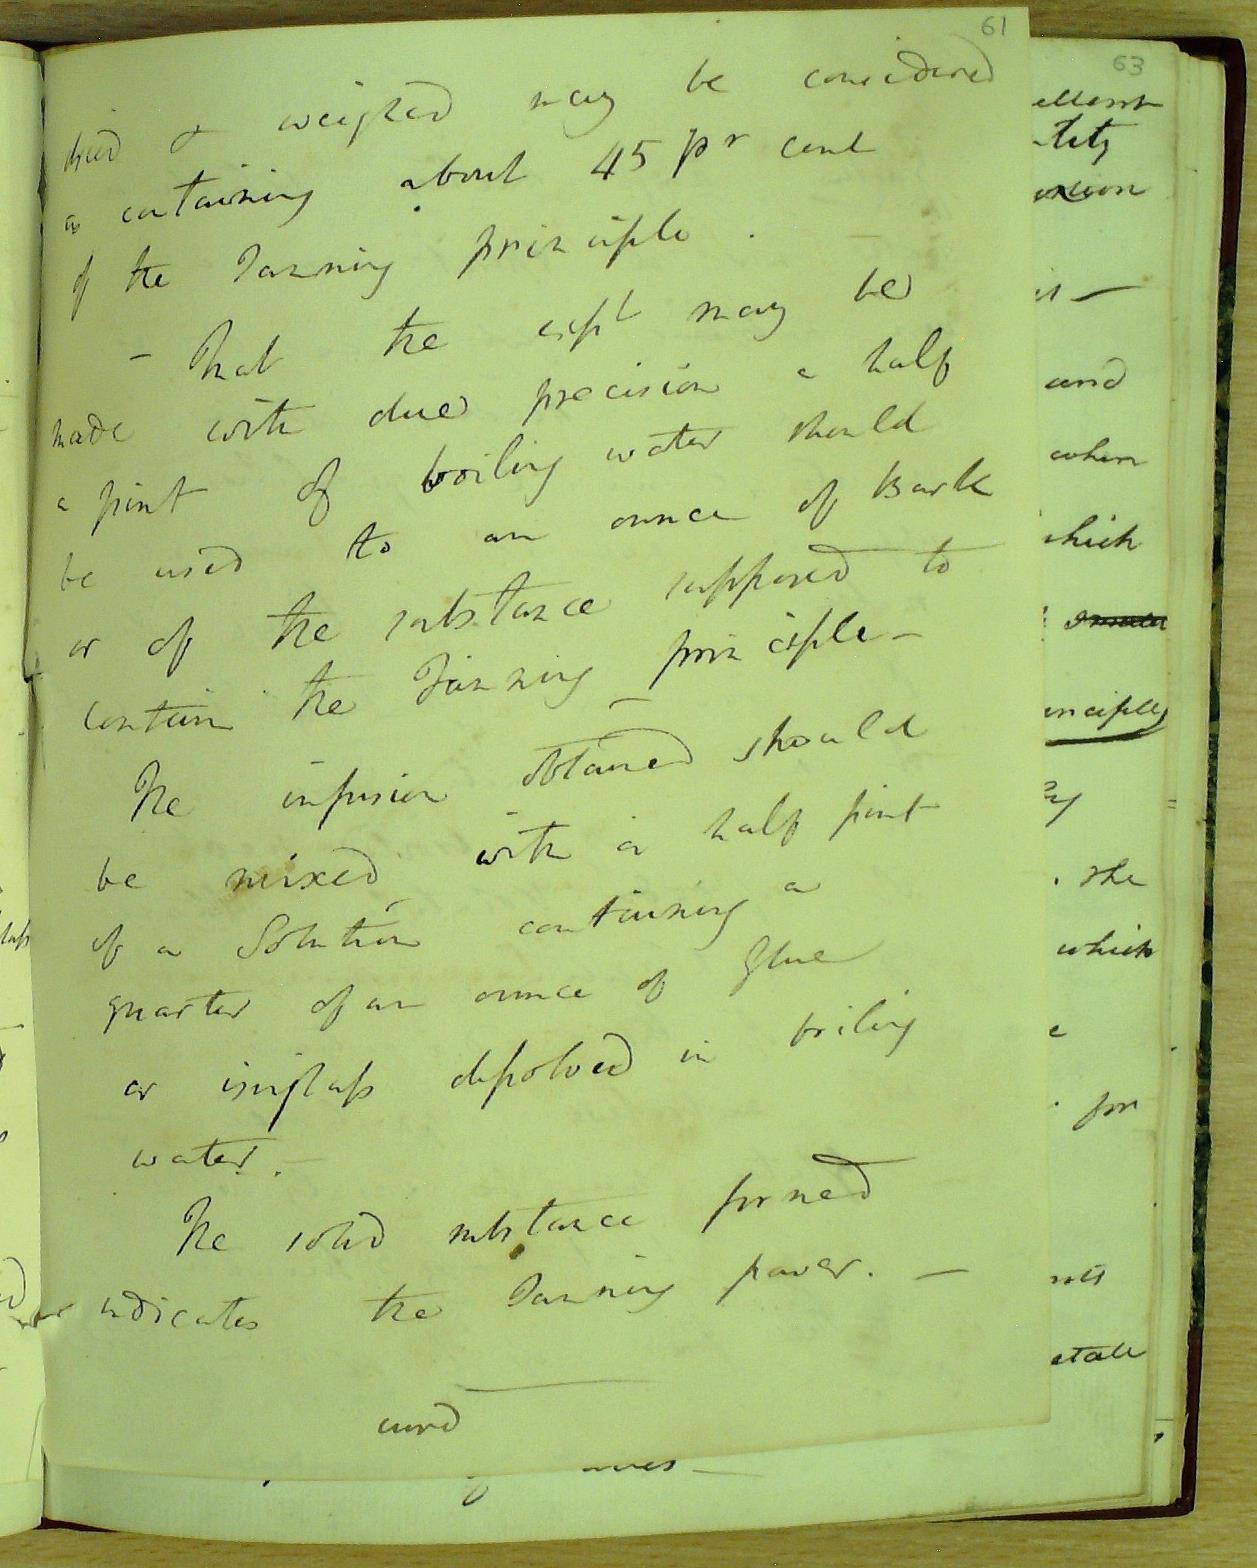 61
dried & weighed may be considered
as containing about 45 pr cent
of the Tanning principle . —
— That the expt may be
made with due precision a half
a pint of boiling water should
be used to an ounce of Bark
or of the substance supposed to
contain the Tanning principle —
The infusion obtained should
be mixed with a half pint
of a Solution containing a
quarter of an ounce of Glue
or isinglass dissolved in boiling
water. —
The solid substance formed
indicates the Tanning power. —
63
ellent
tity
and
when
which
principles
the
which
for